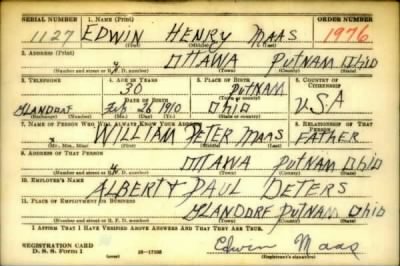 SERIAL NUMBER 1. NAME (Print) ORDER NUMBER
1127 EDWIN HENRY MAAS 1976
(First) (Middle) (Last)
2. ADDRESS (Print)
OTTAWA PUTNAM OHIO
(Number and street or R. F. D. number) (Town) (County) (State)
3. TELEPHONE 4. AGE IN YEARS 5. PLACE OF BIRTH 6. COUNTRY OF CITIZENSHIP
30 PUTNAM
(Town) (County)
GLANDORF DATE OF BIRTH
Feb 26 1910 OHIO USA
(Exchange) (Number) (Mo.) (Day) (Yr.) (State or country)
7. NAME OF PERSON WHO WILL ALWAYS KNOW YOUR ADDRESS 8. RELATIONSHIP OF THAT PERSON
WILLIAM PETER MAAS FATHER
(Mr., Mrs., Miss) (First) (Middle) (Last)
9. ADDRESS OF THAT PERSON
OTTAWA PUTNAM OHIO
(Number and street or R. F. D. number) (Town) (County) (State)
10. EMPLOYER'S NAME
ALBERT & PAUL DETERS
11. PLACE OF EMPLOYMENT OR BUSINESS
GLANDORF PUTNAM OHIO
(Number and street or R. F. D. number) (Town) (County) (State)
I AFFIRM THAT I HAVE VERIFIED ABOVE ANSWERS AND THAT THEY ARE TRUE.
REGISTRATION CARD Edwin Maas
D. S. S. Form 1 (Registrant's signature)